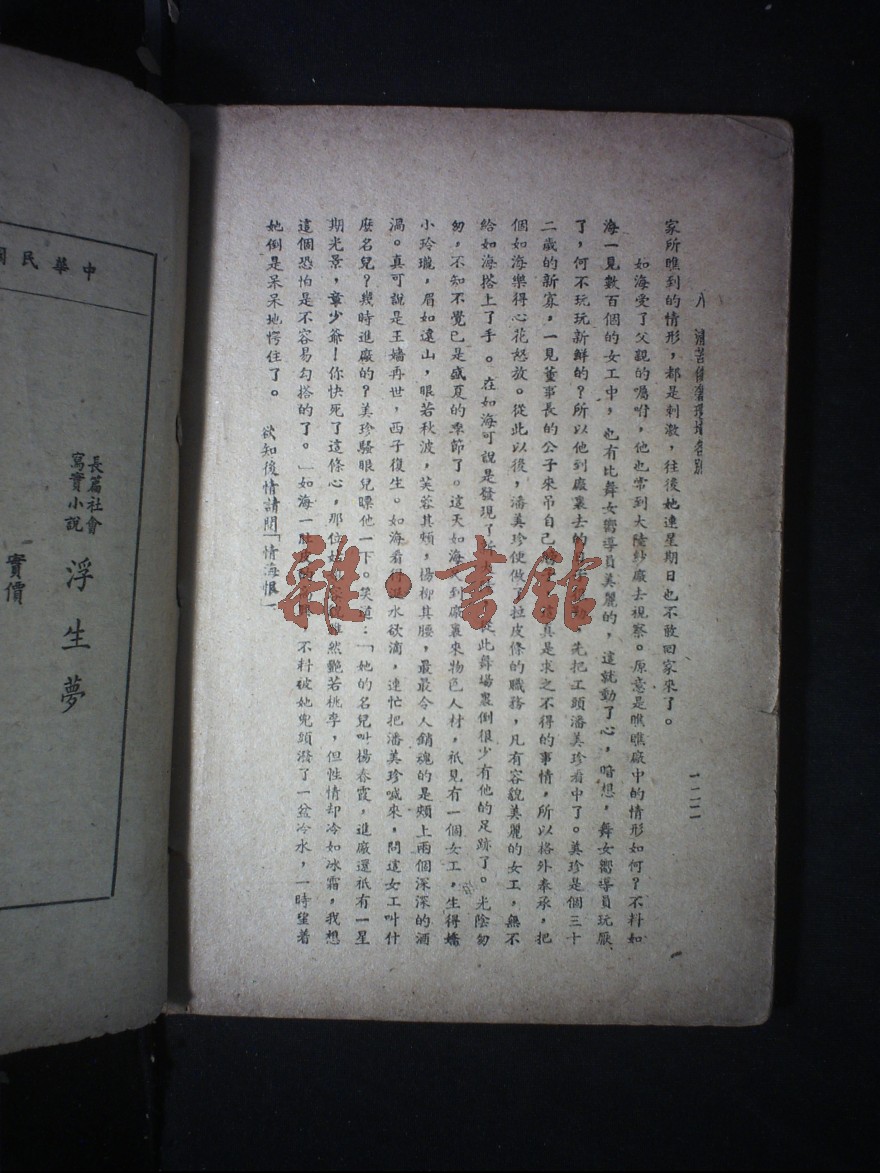 八
環境各別
一二二
家所瞧到的情形，都是刺激，往後她連星期日也不敢回家來了。
如海受了父親的囑咐，他也常到大陸紗廠去視察。原意是瞧瞧廠中的情形如何？不料如
海一見數百個的女工中，也有比舞女嚮導員美麗的，這就動了心，暗想，舞女嚮導員玩厭
了，何不玩玩新鮮的？所以他到廠裏去的，先把工頭潘美珍看中了。美珍是個三十
二歲的新寡，一見董事長的公子來吊自己，真是求之不得的事情，所以格外奉承，把
個如海樂得心花怒放。從此以後，潘美珍便做了拉皮條的職務，凡有容貌美麗的女工，無不
給如海搭上了手。在如海可說是發現了從此舞場裏倒很少有他的足跡了。光陰匆
匆，不知不覺已是盛夏的季節了。這天如海又到廠裏來物色人材，祇見有一個女工，生得嬌
小玲瓏，眉如遠山，眼若秋波，芙蓉其頰，楊柳其腰，最最令人銷魂的是頰上兩個深深的酒
渦。真可說是王嬙再世，西子復生。如海看得涎水欲滴，連忙把潘美珍喊來，問這女工叫什
麽名兒？幾時進廠的？美珍騷眼兒瞟他一下。笑道：「她的名兒叫楊春霞，進廠還祇有一星
期光景，章少爺！你快死了這條心，那位雖然艷若桃李，但性情却冷如冰霜，我想
這個恐怕是不容易勾搭的了。」如海一不料被她兜頭潑了一盆冷水，一時望着
她倒是呆呆地愕住了。
欲知後情請閱「情海恨」
中華民國
長篇社會
寫實小說
浮生夢
實價
雜·書館